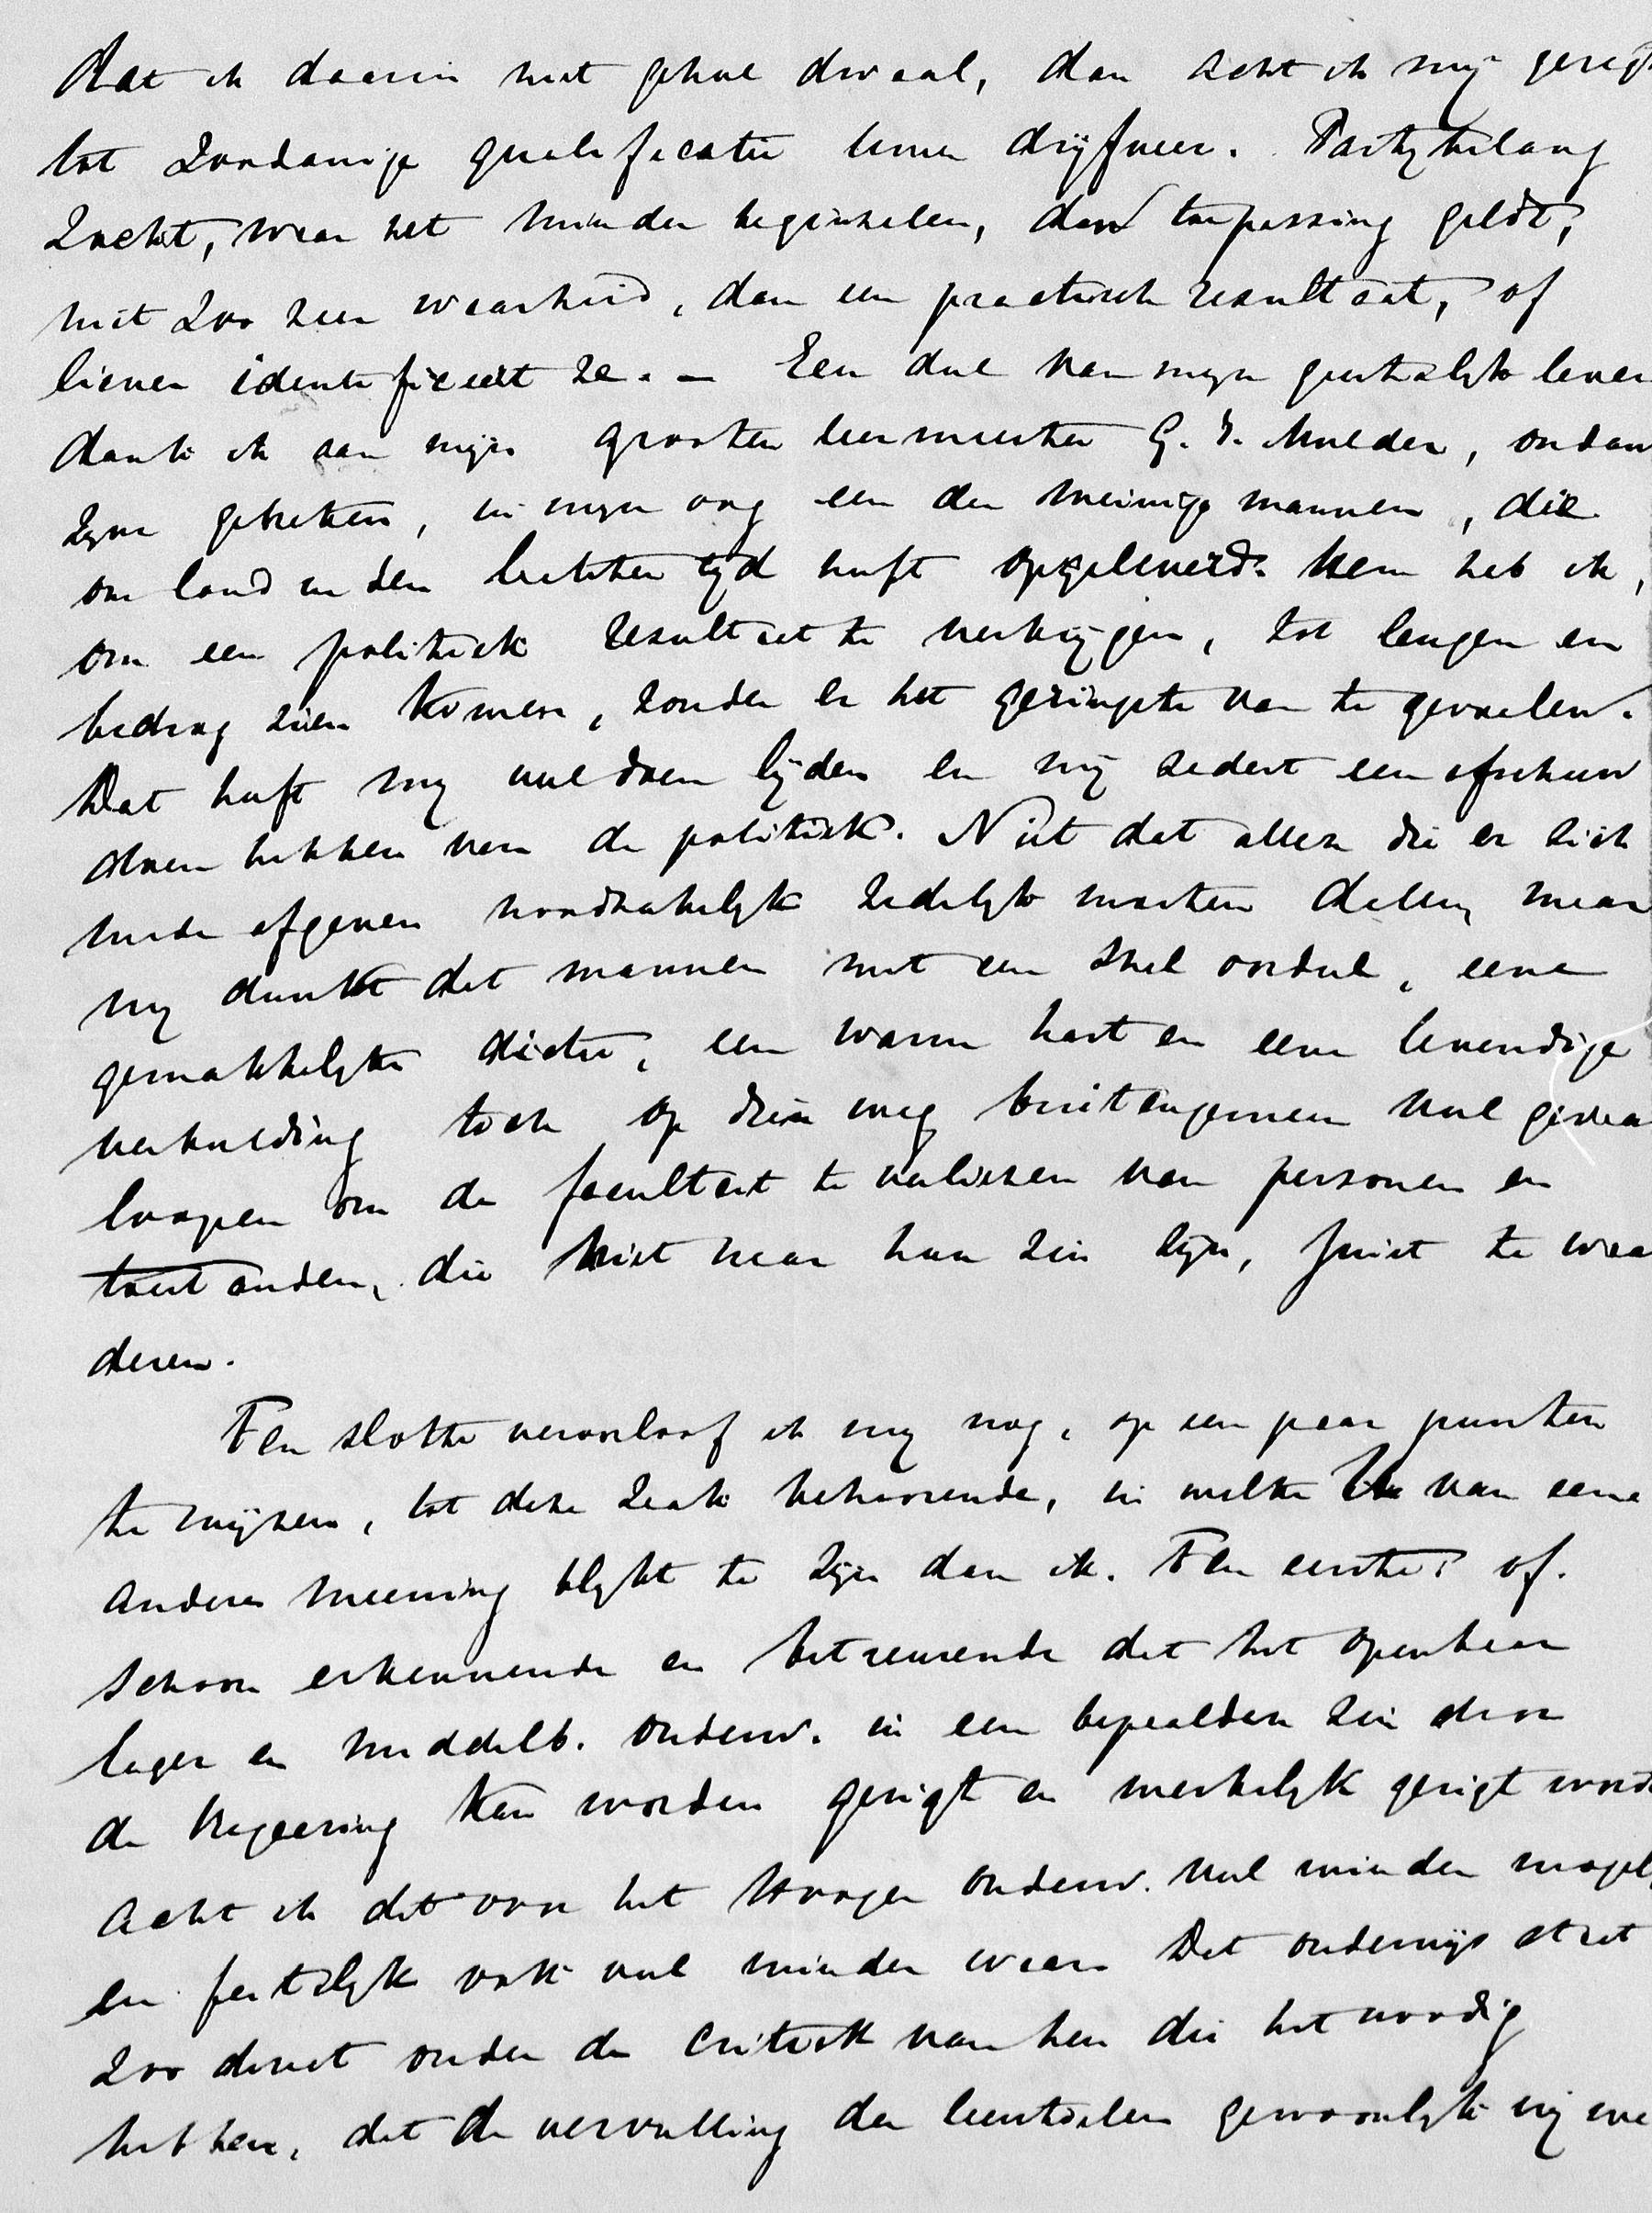 dat ik daarin niet geheel dwaal, dan acht ik mij geregt
tot zoodanige qualificatie uwer drijfveer. Partybelang
zoekt, waar het minder beginselen, dan toepassing geldt,
niet zoo zeer waarheid, dan een practisch resultaat, of
liever identificeert ze. – Een deel van myn geestelyk leven
dank ik aan myn grooten leermeester G. J. Mulder, ondanks
zyne gebreken, in myn oog een der weinige mannen, die
ons land in den lateren tyd heeft opgeleverd. Hem heb ik,
om een politiek resultaat te verkrygen, tot leugen en
bedrog zien komen, zonder er het geringste van te gevoelen.
Dat heeft my veel doen lijden en mij sedert een afschuw
doen hebben van de politiek. Niet dat allen die er zich
mede afgeven noodzakelyk zedelyk moeten dalen, maar
my dunkt dat mannen met een snel oordeel, eene
gemakkelyke dictie, een warm hart en eene levendige
verbeelding toch op dien weg buitengemeen veel gevaar
loopen om de faculteit te verliezen van personen en
toestanden, die niet naar hun zin zyn, juist te waar
deeren.
Ten slotte veroorloof ik my nog, op een paar punten
te wijzen, tot deze zaak behoorende, in welke U van eene
andere meening blykt te zyn dan ik. Ten eerste: of.
schoon erkennende en betreurende dat het openbaar
lager en middelb. onderw. in een bepaalden zin door
de Regeering kan worden gerigt en werkelyk gerigt wordt
acht ik dit voor het Hooger onderw. veel minder mogelyk
en feitelyk ook veel minder waar. Dat onderwijs staat
zoo direct onder de critiek van hen die het noodig
hebben, dat de vervulling der leerstoelen gewoonlyk vrij wel